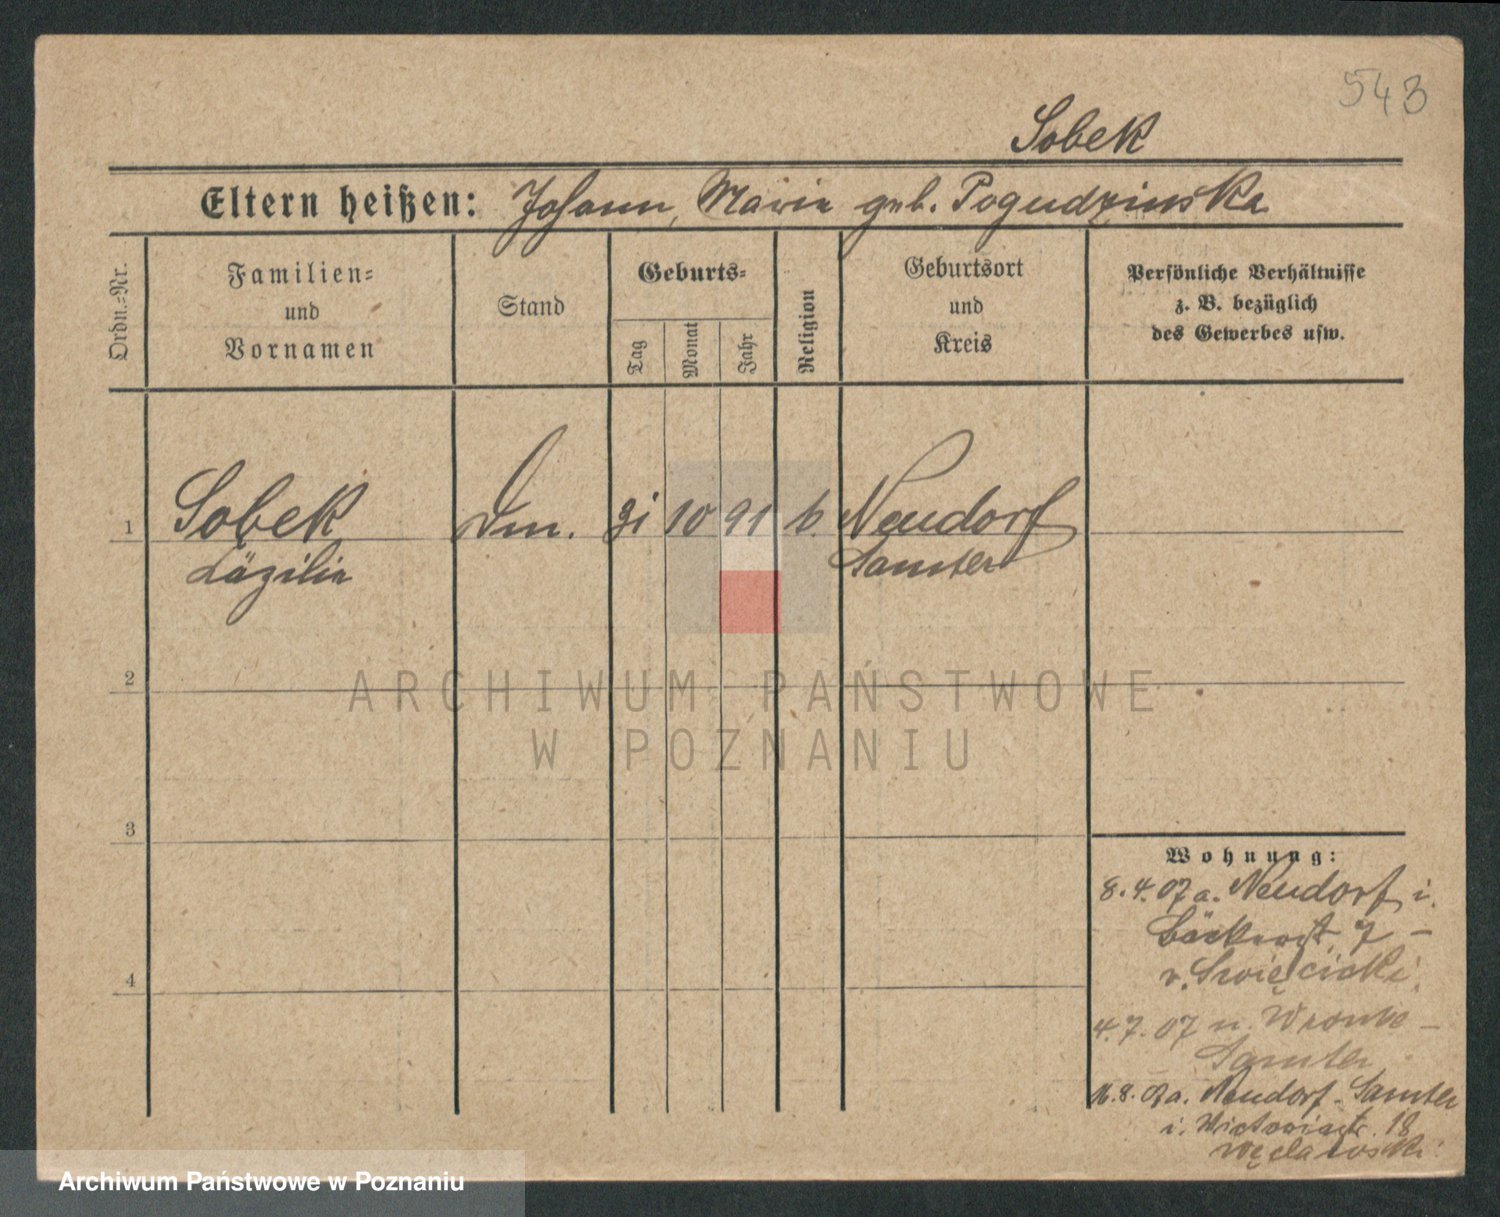 543
Sobek
Eltern heißen: Johann, Marie geb. Pogudzinska
Ordn.=Nr.
Familien=
und
Vornamen
Stand
Geburts=
Tag
Monat
Jahr
Religion
Geburtsort
und
Kreis
Persönliche Verhältnisse
z. B. bezüglich
des Gewerbes usw.
1
Sobek
Läzilie
Dm.
31
10
91
k.
Neudorf
Samter
2
ARCHIWUM PAŃSTWOWE
W POZNANIU
3
Wohnung:
8.4.07 a. Neudorf i.
Bäckerst. 7 –
v. Swięcicki.
4
4.7.07 n. Wronke –
Samter
16.8.07 a. Neudorf – Samter
i. Victoriastr. 18
Węclawski.
Archiwum Państwowe w Poznaniu